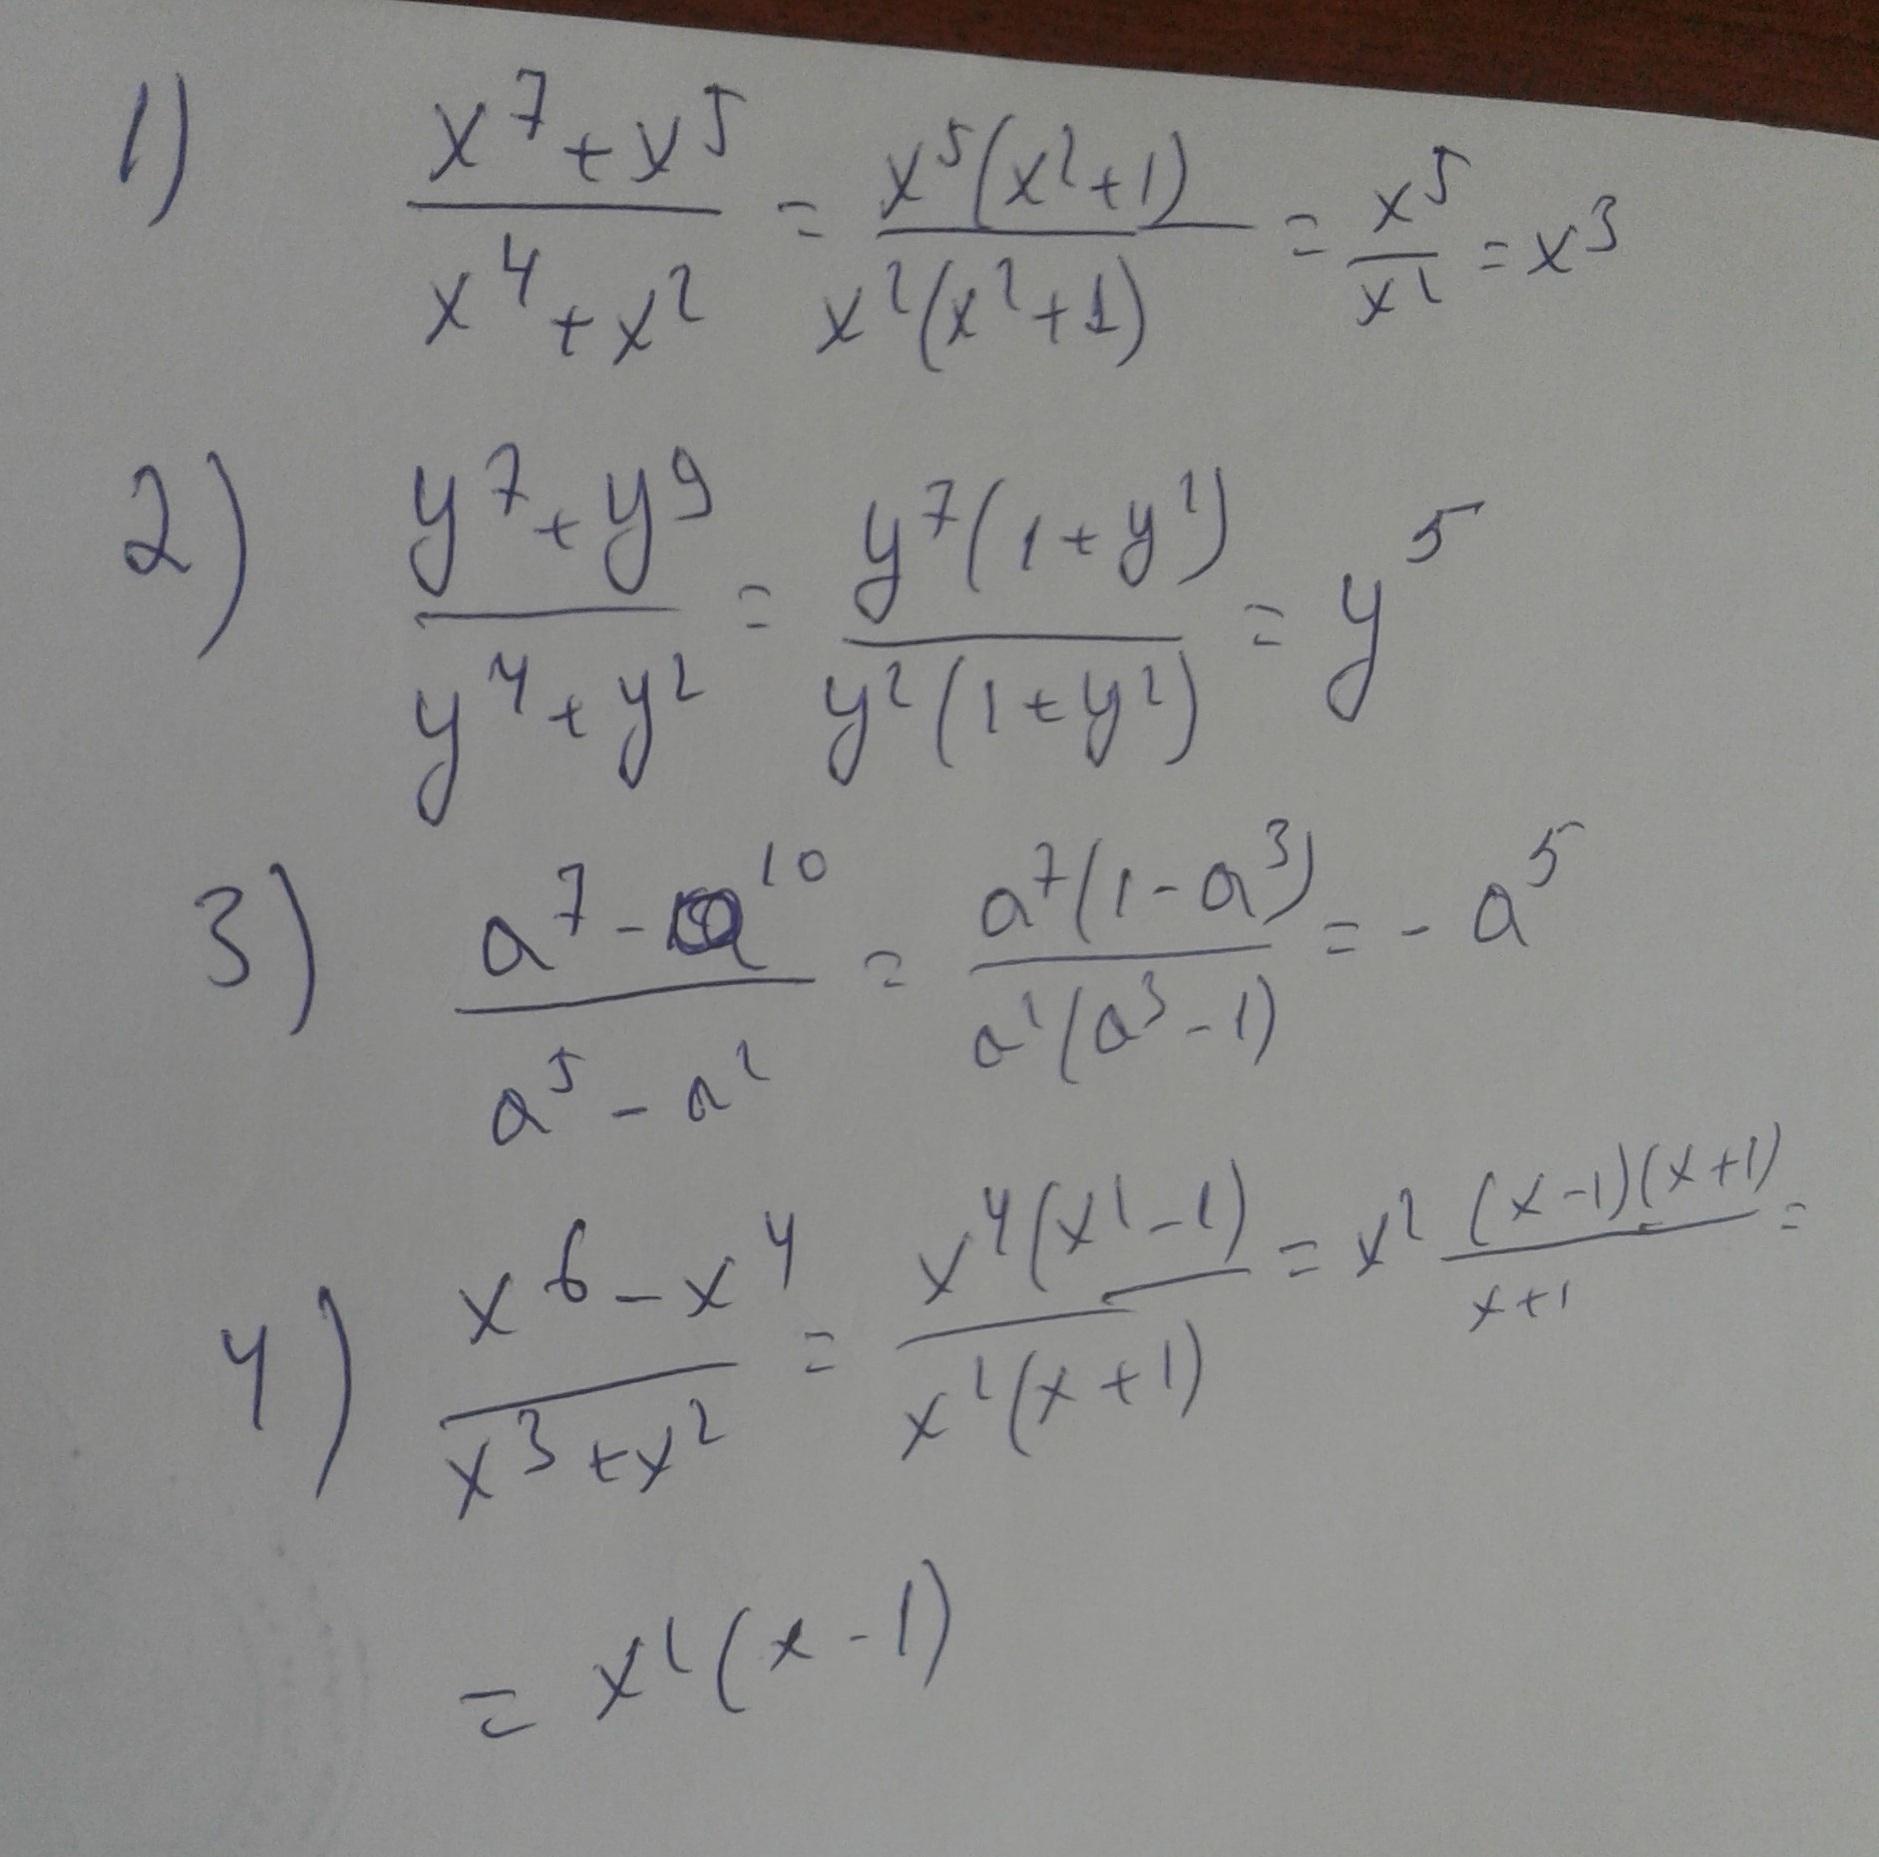 1) (x^7 + x^5)/(x^4 + x^2) = (x^5(x^2+1))/(x^2(x^2+1)) = x^5/x^2 = x^3
2) (y^7 + y^9)/(y^4 + y^2) = (y^7(1+y^2))/(y^2(1+y^2)) = y^5
3) (a^7 - a^10)/(a^5 - a^2) = (a^7(1-a^3))/(a^2(a^3-1)) = -a^5
4) (x^6 - x^4)/(x^3 + x^2) = (x^4(x^2-1))/(x^2(x+1)) = x^2 ((x-1)(x+1))/(x+1) =
= x^2(x-1)